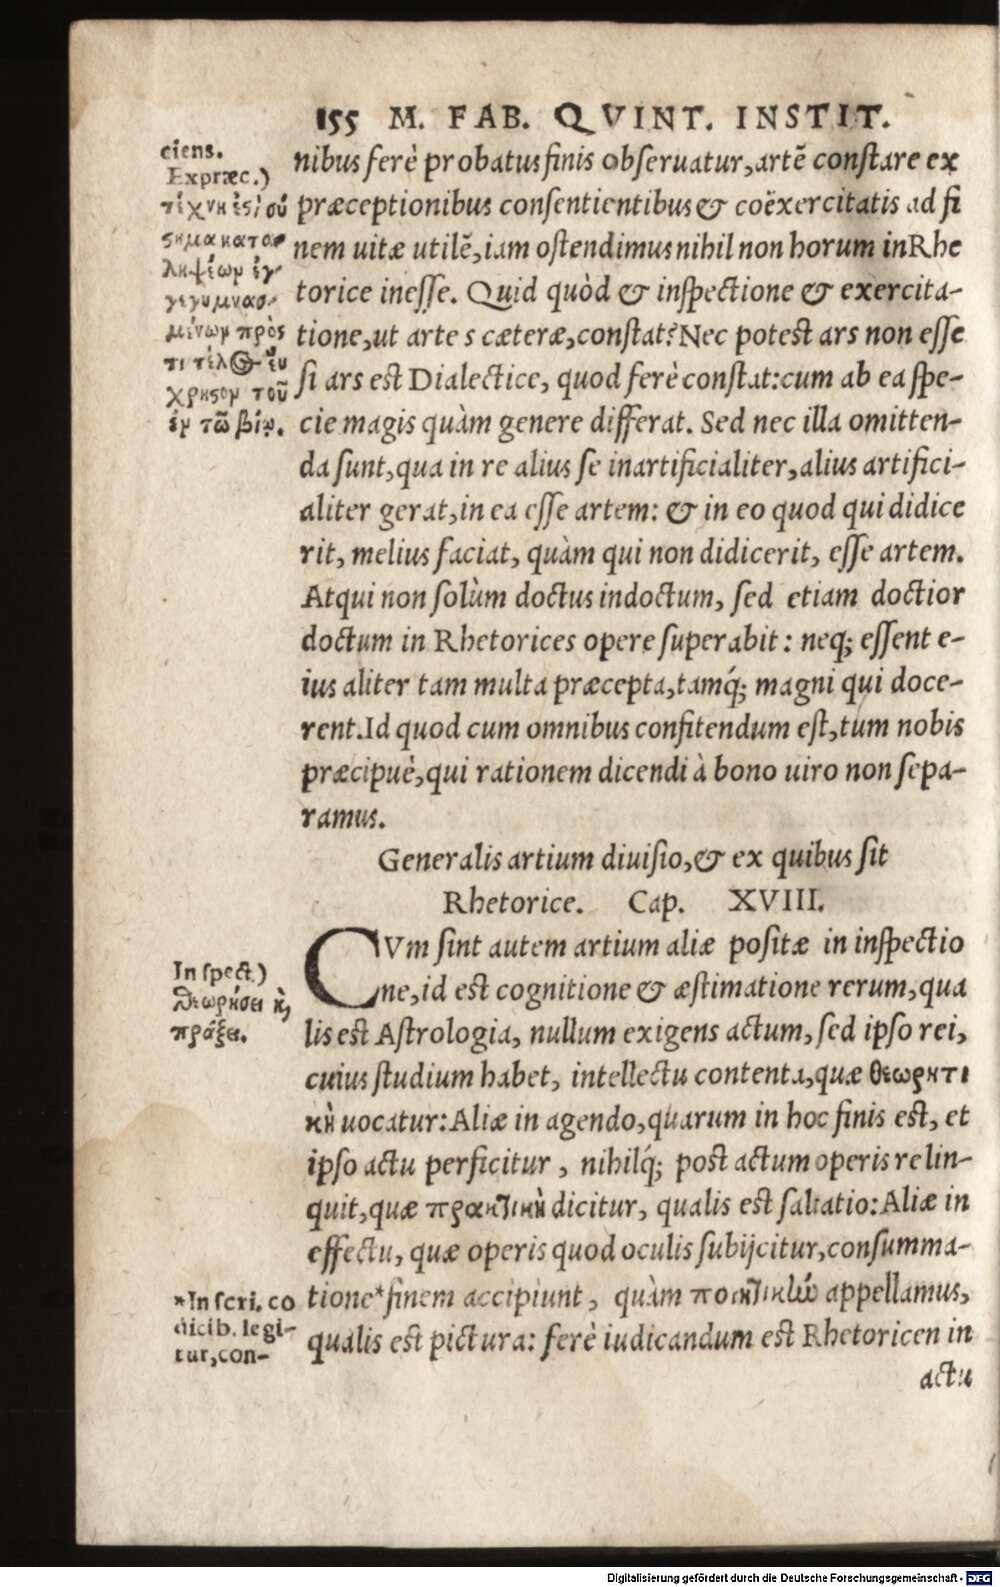 155 M. FAB. QVINT. INSTIT.
ciens.
Expræc.)
τέχνη ἐςὶ σύ
ςημα κατα-
λήψεωμ ἐγ-
γεγυμνασ-
μένωμ πρὸς
τι τέλΘ- ἔυ
χρηςομ τοῦ
ἐμ τῶ βίῳ.
nibus ferè probatus finis obſeruatur, artē conſtare ex
præceptionibus conſentientibus & coëxercitatis ad fi
nem uitæ utilē, iam oſtendimus nihil non horum in Rhe
torice ineſſe. Quid quòd & inſpectione & exercita-
tione, ut arte s cæteræ, conſtat? Nec poteſt ars non eſſe
ſi ars eſt Dialectice, quod ferè conſtat: cum ab ea ſpe-
cie magis quàm genere differat. Sed nec illa omitten-
da ſunt, qua in re alius ſe inartificialiter, alius artifici-
aliter gerat, in ea eſſe artem: & in eo quod qui didice
rit, melius faciat, quàm qui non didicerit, eſſe artem.
Atqui non ſolùm doctus indoctum, ſed etiam doctior
doctum in Rhetorices opere ſuperabit: neq; eſſent e-
ius aliter tam multa præcepta, tamq́; magni qui doce-
rent. Id quod cum omnibus confitendum eſt, tum nobis
præcipuè, qui rationem dicendi à bono uiro non ſepa-
ramus.
Generalis artium diuiſio, & ex quibus ſit
Rhetorice. Cap. XVIII.
In ſpect.)
θεωρήσει κ,
πράξει.
CVm ſint autem artium aliæ poſitæ in inſpectio
ne, id eſt cognitione & æſtimatione rerum, qua
lis eſt Aſtrologia, nullum exigens actum, ſed ipſo rei,
cuius ſtudium habet, intellectu contenta, quæ θεωρητι
κὴ uocatur: Aliæ in agendo, quarum in hoc finis eſt, et
ipſo actu perficitur, nihilq́; poſt actum operis relin-
quit, quæ πρακτικὴ dicitur, qualis eſt ſaltatio: Aliæ in
effectu, quæ operis quod oculis ſubijcitur, conſumma-
tione* finem accipiunt, quàm ποιητικὴν appellamus,
qualis eſt pictura: ferè iudicandum eſt Rhetoricen in
*In ſcri. co
dicib. legi-
tur, con-
actu
Digitalisierung gefördert durch die Deutsche Forschungsgemeinschaft - DFG